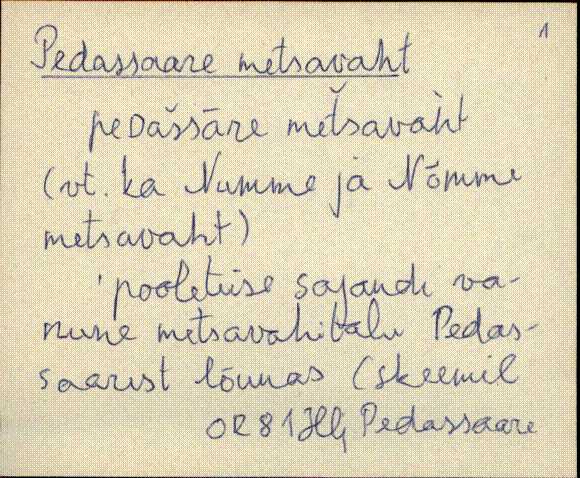 1
Pedassaare metsavaht
peDaššāre metšavàht
(vt. ka Numme ja Nõmme
metsavaht)
'pooleteise sajandi va-
nune metsavahitalu Pedas-
saarist lõunas (skeemil
OR81 Hlj Pedassaare